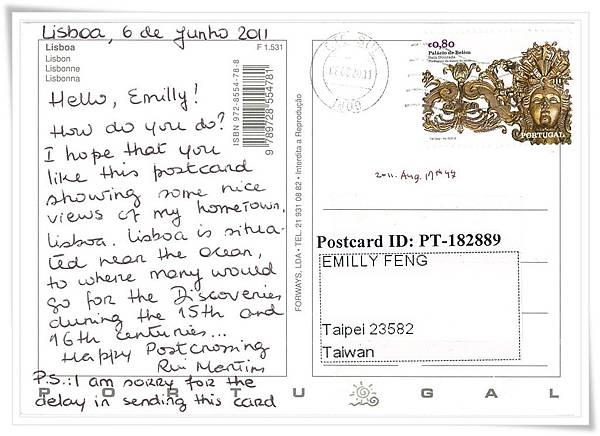 Lisboa, 6 de Junho 2011
Lisboa
Lisbon
Lisbonne
Lisbonna
F 1.531
Hello, Emilly!
How do you do?
I hope that you
like this postcard
showing some nice
views of my hometown,
Lisboa. Lisboa is situa-
ted near the ocean,
to where many would
go for the Discoveries
during the 15th and
16th centuries...
Happy Postcrossing
Rui Martins
P.S.: I am sorry for the
delay in sending this card
ISBN 972-8554-78-8
9 789728 554781
FORWAYS, LDA • TEL. 21 931 08 82 • Interdita a Reprodução
€0,80
Palácio de Belém
Sala Dourada
PORTUGAL
2011. Aug. 17th
Postcard ID: PT-182889
EMILLY FENG
Taipei 23582
Taiwan
PORTUGAL